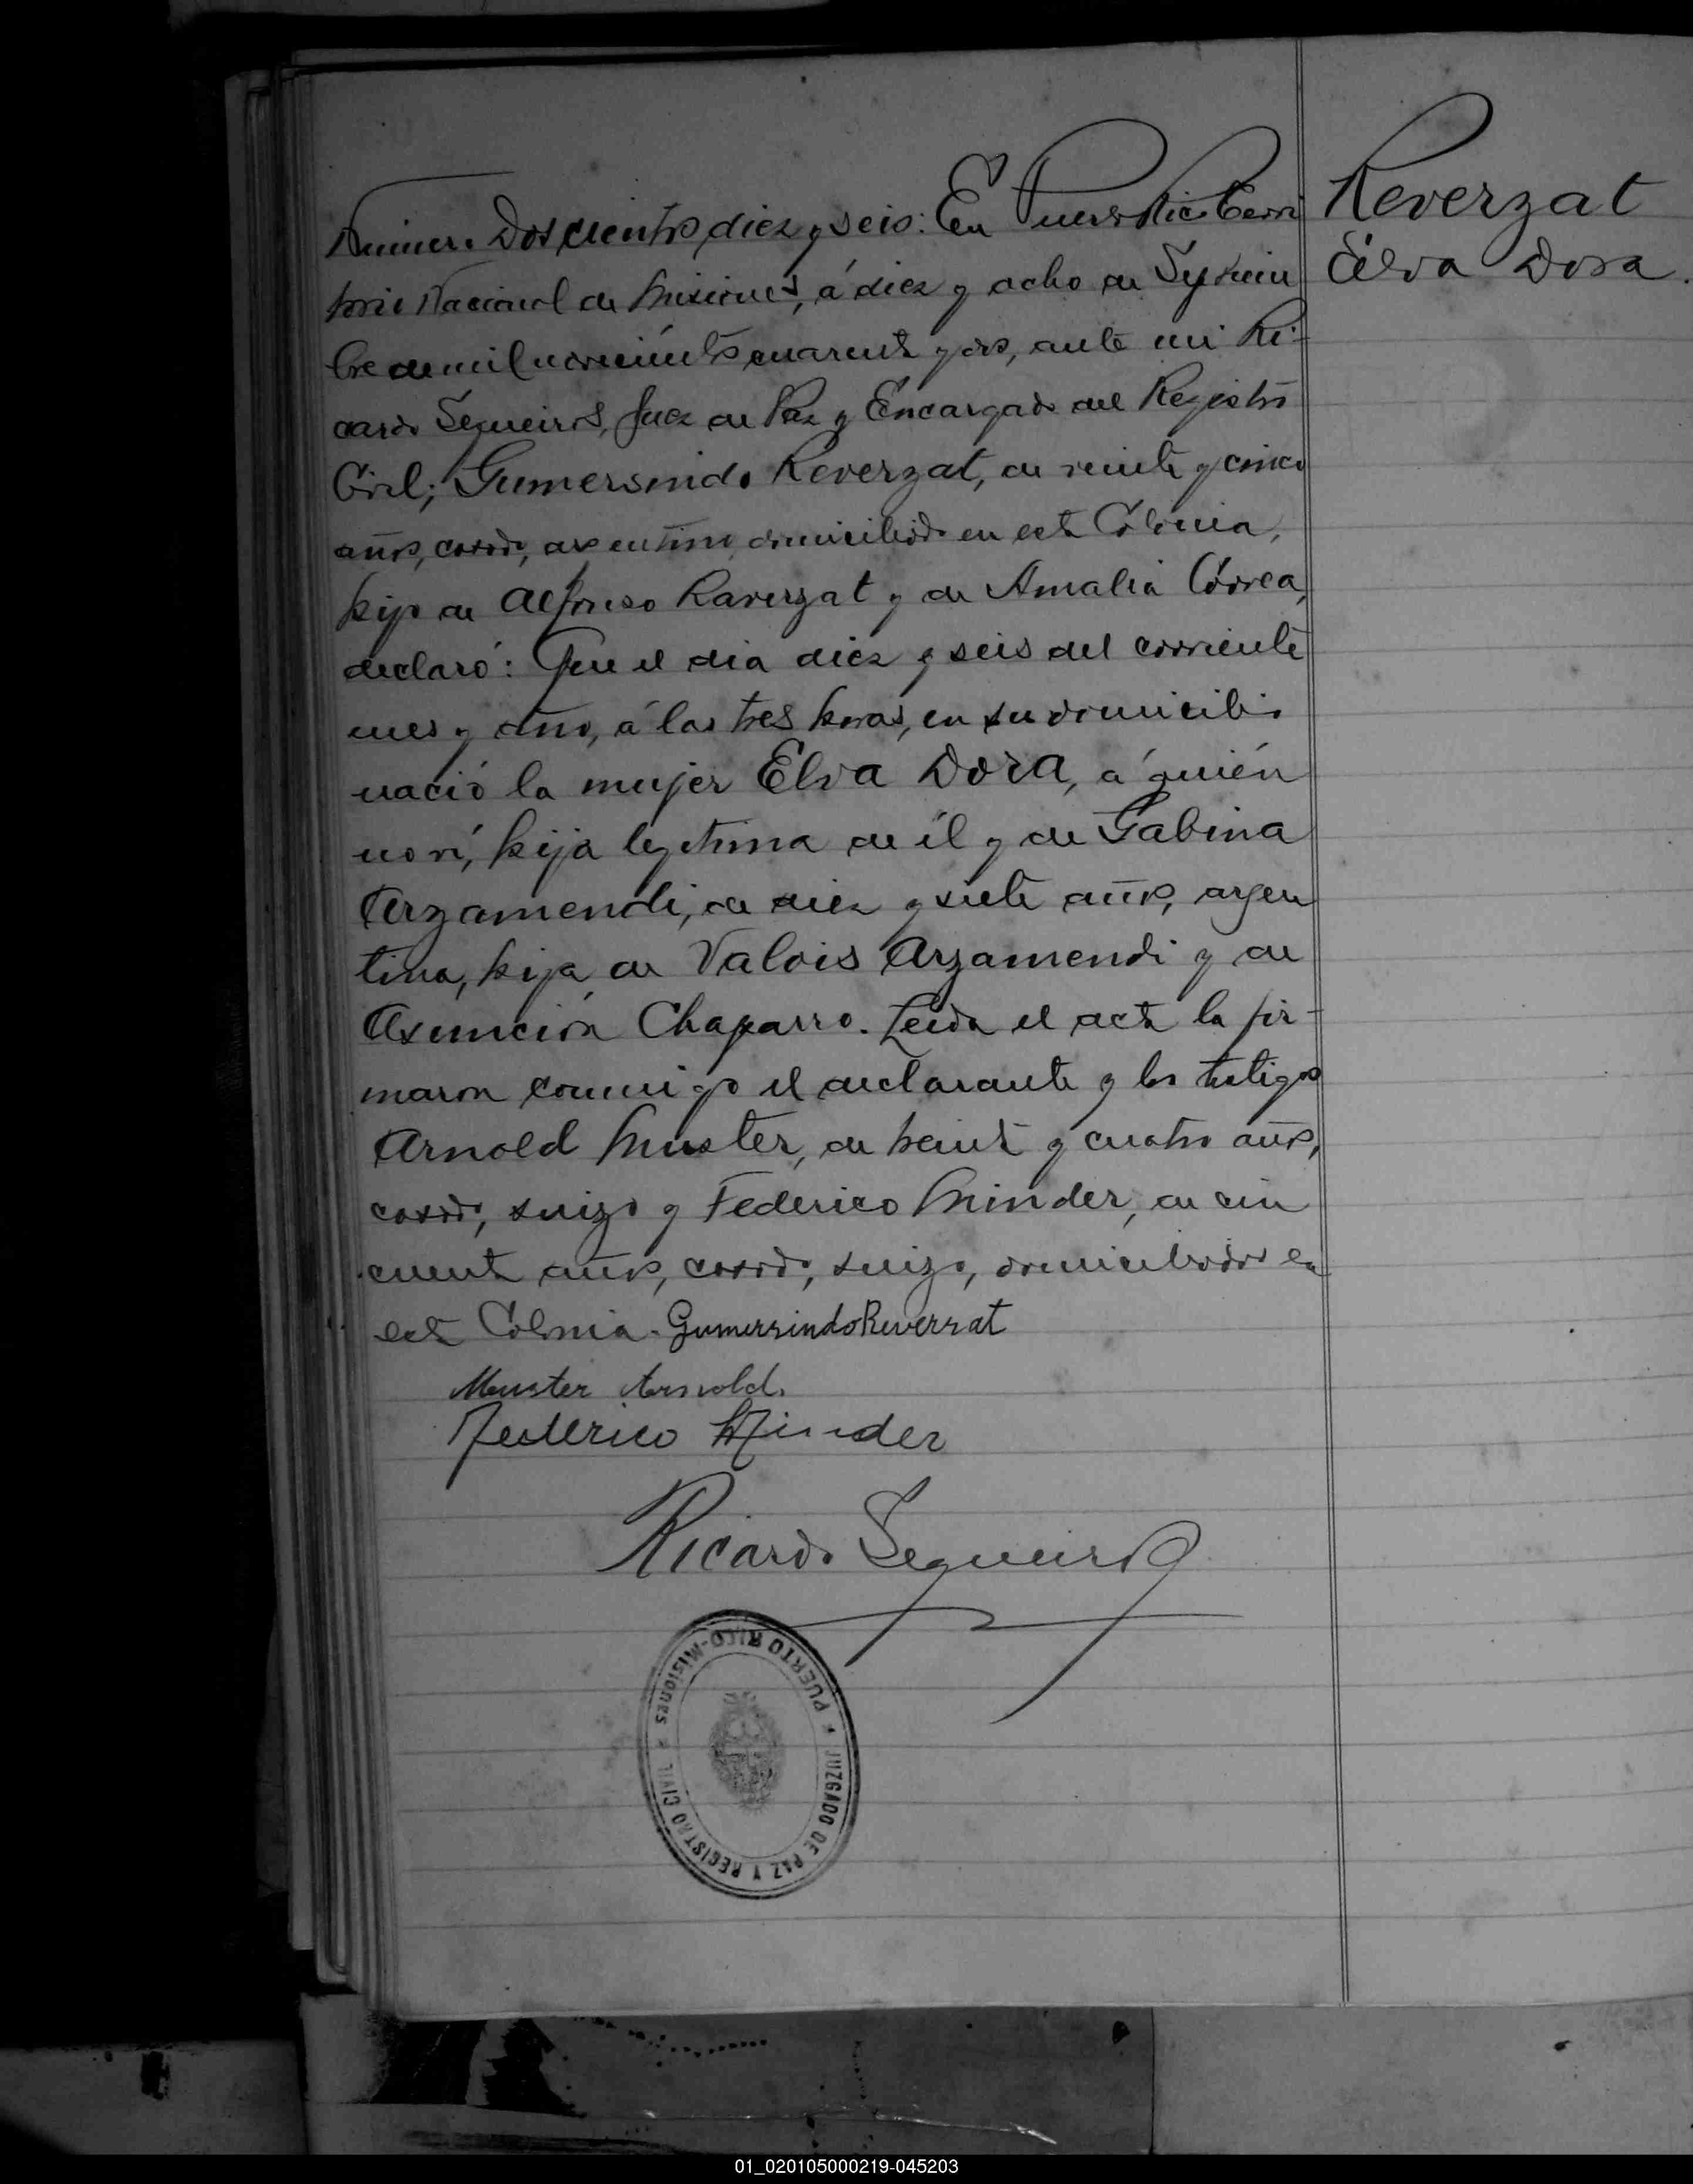 Número Doscientos diez y seis: En Puerto Rico Terri
torio Nacional de Misiones, á diez y ocho de Septiem
bre de mil novecientos cuarenta y dos, ante mi Ri-
cardo Sequeiros, Juez de Paz y Encargado del Registro
Civil; Gumersindo Reverzat, de veinte y cinco
años, casado, argentino, domiciliado en esta Colonia,
hijo de Alfonso Raverzat y de Amalia Correa,
declaró: Que el dia diez y seis del corriente
mes y año, á las tres horas, en su domicilio
nació la mujer Elva Dora, á quién
no ví, hija legitima de él y de Gabina
Arzamendi, de diez y siete años, argen
tina, hija de Valois Arzamendi y de
Asunción Chaparro. Leida el acta la fir-
maron conmigo el declarante y los testigos
Arnold Muster, de treinta y cuatro años,
casado, suizo y Federico Minder, de cin
cuenta años, casado, suizo, domiciliados en
esta Colonia. Gumersindo Reverzat
Muster Arnold.
Federico Minder
Ricardo Sequeiros
PUERTO RICO-Misiones * JUZGADO DE PAZ Y REGISTRO CIVIL *
Reverzat
Elva Dora.
01_020105000219-045203